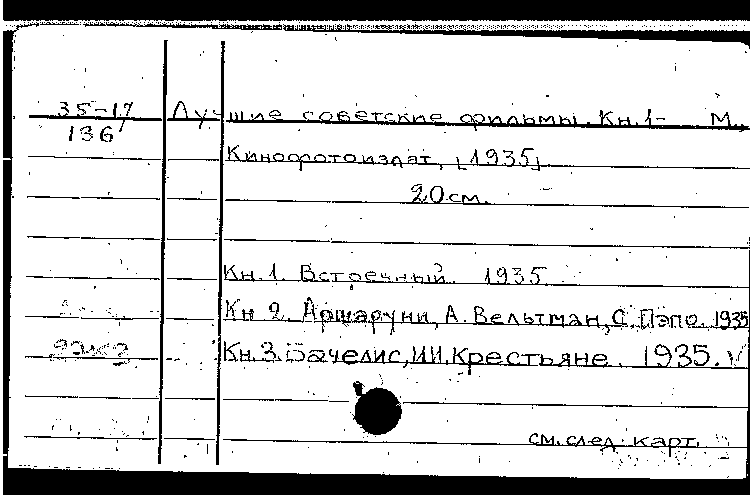 35-17 Лучшие советские фильмы. Кн.1- М.,
136
Кинофотоиздат, [1935].
20 см.
Кн.1. Встречный. 1935
Кн 2. Аршаруни, А. Вельтман, С. Пэпо. 1935
Кн.3. Бачелис, И.И. Крестьяне. 1935. V
см. след. карт.